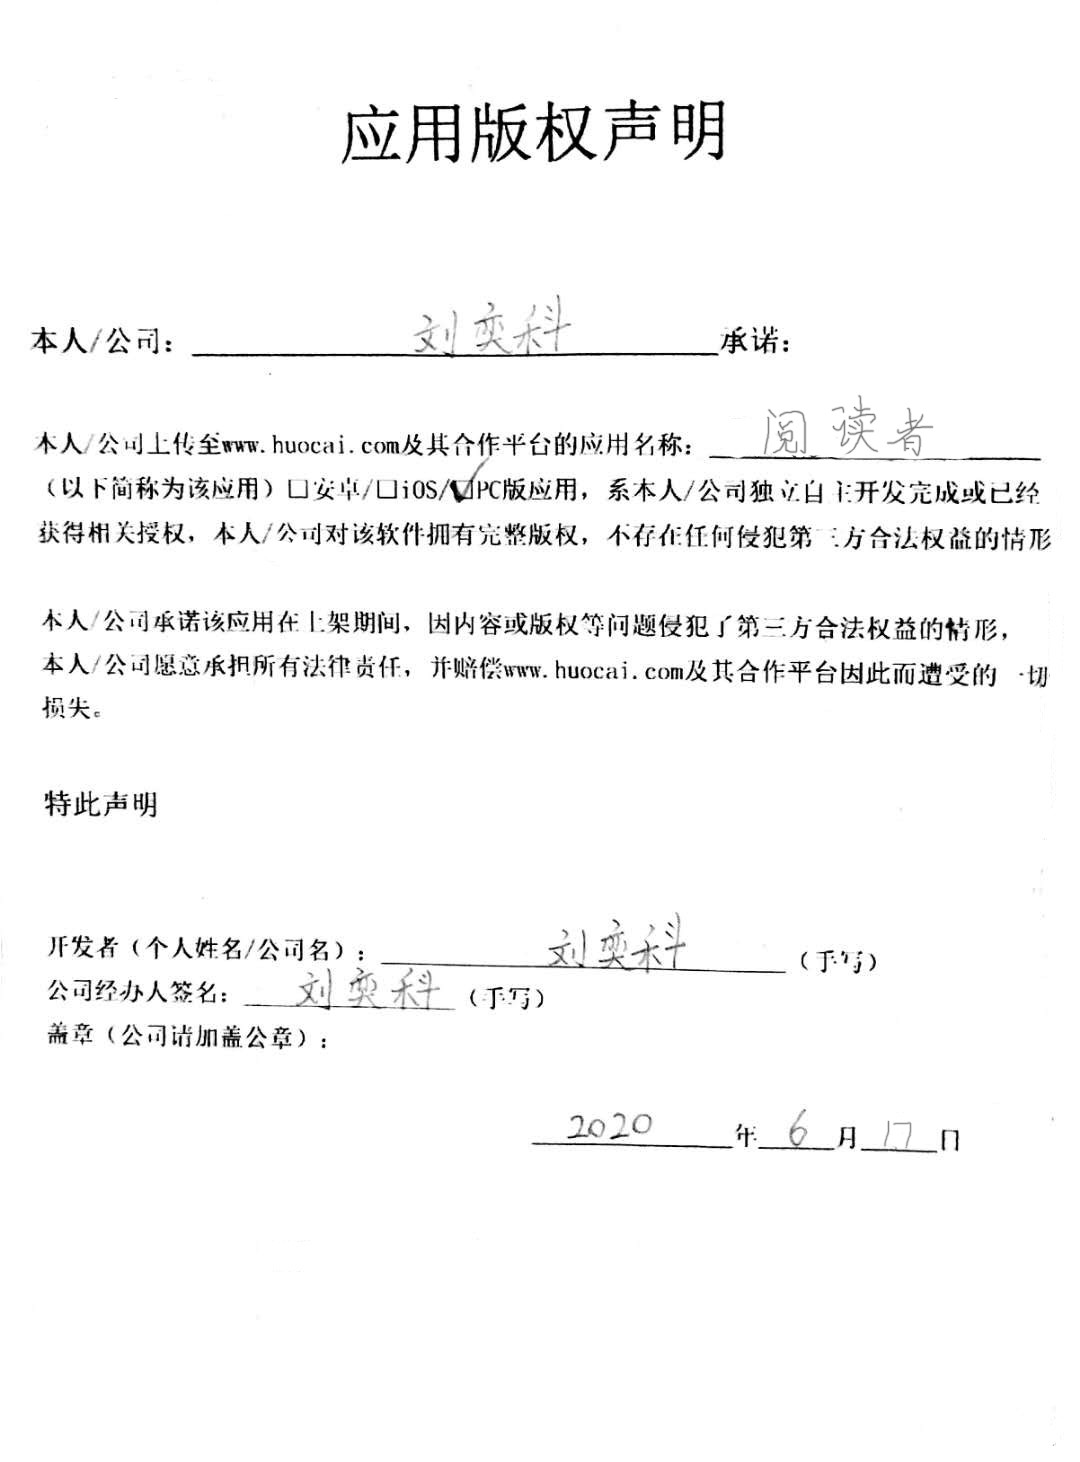 应用版权声明
本人/公司：刘奕科承诺：
本人/公司上传至www.huocai.com及其合作平台的应用名称：阅读者
（以下简称为该应用）□安卓/□iOS/☑PC版应用，系本人/公司独立自主开发完成或已经
获得相关授权，本人/公司对该软件拥有完整版权，不存在任何侵犯第三方合法权益的情形
本人/公司承诺该应用在上架期间，因内容或版权等问题侵犯了第三方合法权益的情形，
本人/公司愿意承担所有法律责任，并赔偿www.huocai.com及其合作平台因此而遭受的一切
损失。
特此声明
开发者（个人姓名/公司名）：刘奕科（手写）
公司经办人签名：刘奕科（手写）
盖章（公司请加盖公章）：
2020年6月17日